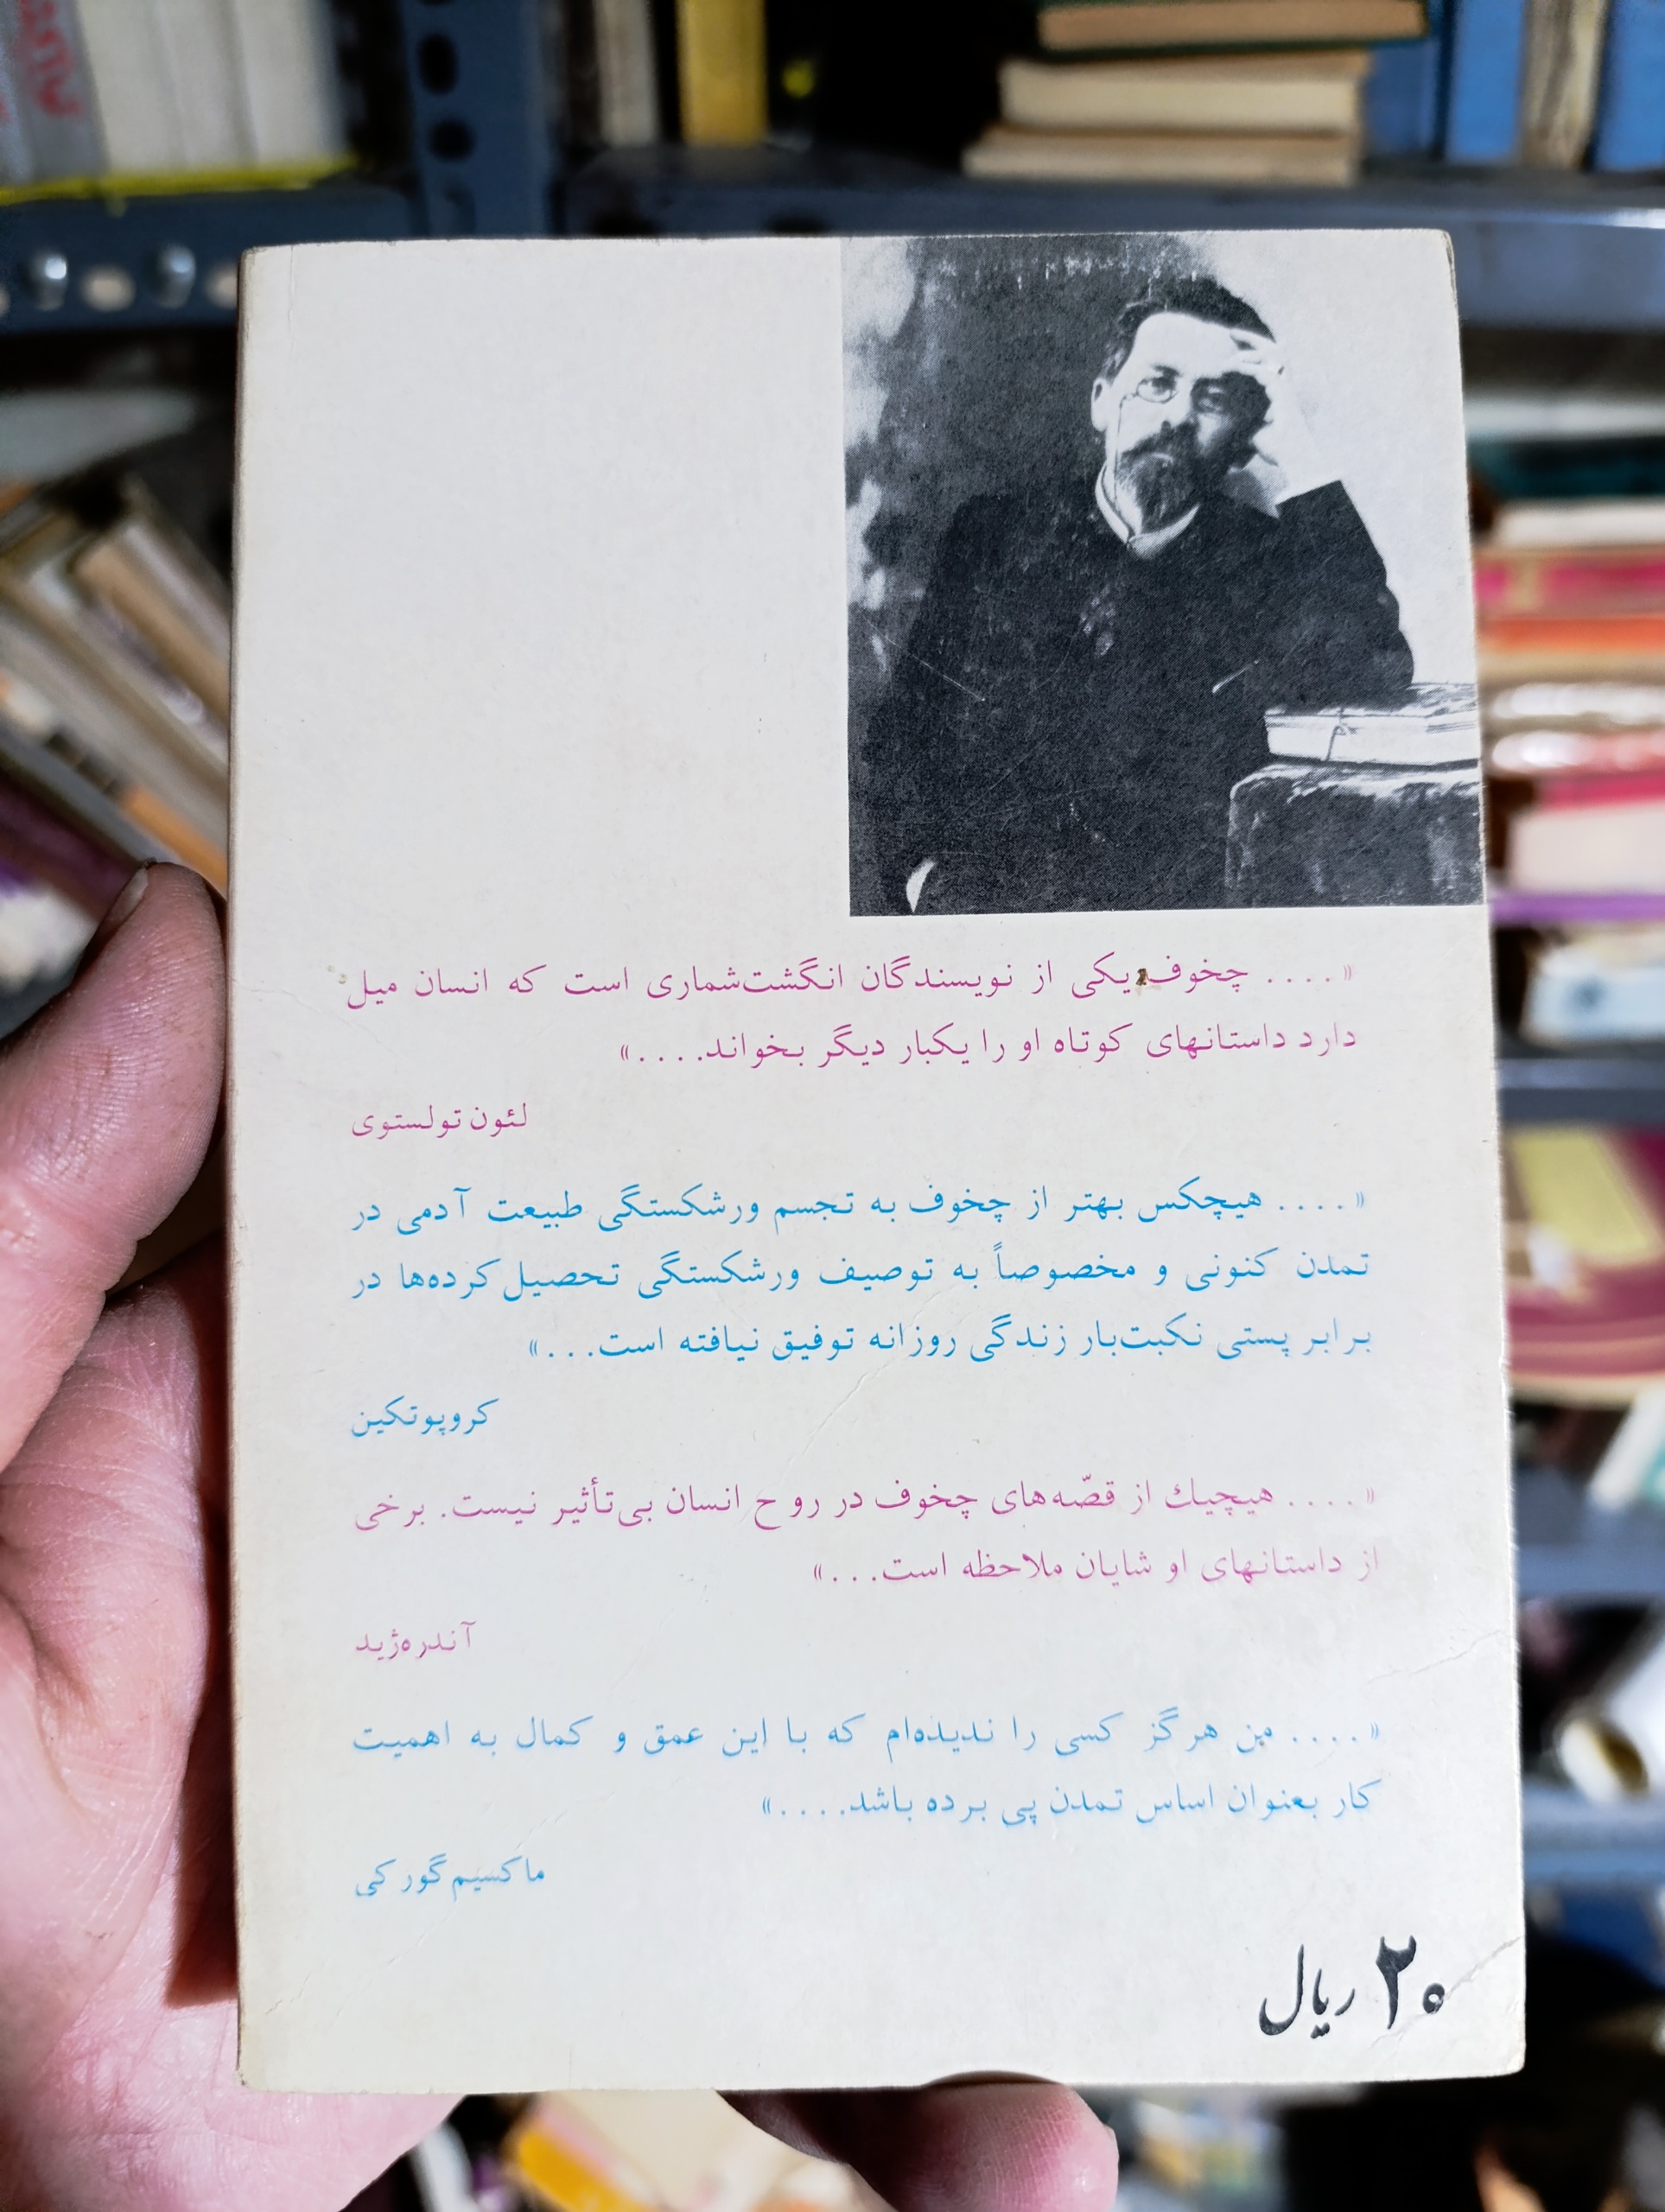 «.... چخوف یکی از نویسندگان انگشت‌شماری است که انسان میل
دارد داستانهای کوتاه او را یکبار دیگر بخواند....»
لئون تولستوی
«.... هیچکس بهتر از چخوف به تجسم ورشکستگی طبیعت آدمی در
تمدن کنونی و مخصوصاً به توصیف ورشکستگی تحصیل‌کرده‌ها در
برابر پستی نکبت‌بار زندگی روزانه توفیق نیافته است...»
کروپوتکین
«.... هیچیك از قصّه‌های چخوف در روح انسان بی‌تأثیر نیست. برخی
از داستانهای او شایان ملاحظه است...»
آندره‌ژید
«.... من هرگز کسی را ندیده‌ام که با این عمق و کمال به اهمیت
کار بعنوان اساس تمدن پی برده باشد....»
ماکسیم گورکی
۲۰ ریال